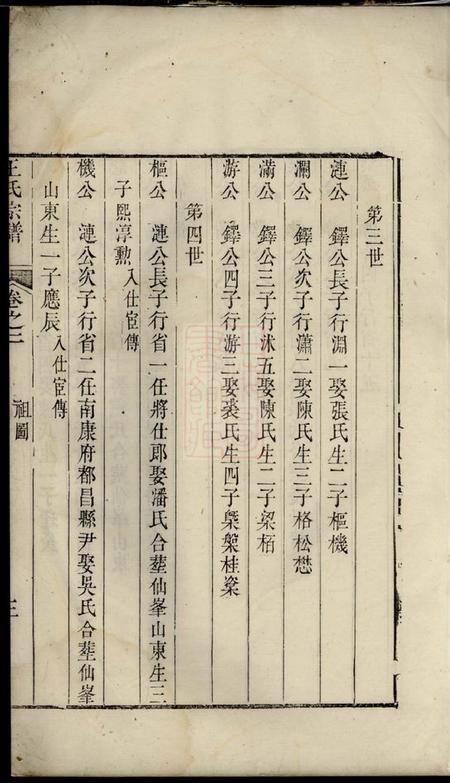 第三世
漣公　鐸公長子行淵一娶張氏生二子樞機
瀾公　鐸公次子行瀟二娶陳氏生三子格松懋
滿公　鐸公三子行沭五娶陳氏生二子梁栢
游公　鐸公四子行游三娶裘氏生四子槩桂
第四世
樞公　漣公長子行省一任將仕郎娶潘氏合塟仙峯山東生三
子熙淳勲入仕宦傳
機公　漣公次子行省二任南康府都昌縣尹娶吳氏合塟仙峯
山東生一子應辰入仕宦傳
王氏宗譜　卷之二　祖圖　三